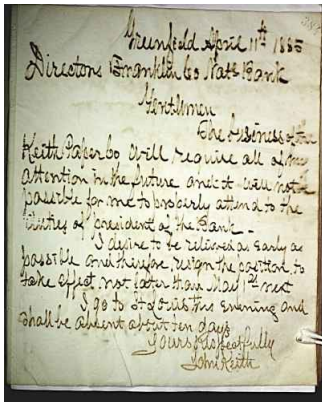 Greenfield April 11th 1885
Directors Franklin Co Natl Bank
Gentlemen
The business of the
Keith Paper Co will require all of my
attention in the future and it will not be
possible for me to properly attend to the
duties of president of the Bank -
I desire to be relieved as early as
possible and therefore, resign the position, to
take effect not later than May 1st next
I go to St Louis this evening and
shall be absent about ten days
Yours Respectfully
John Keith